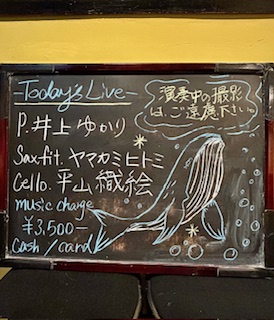 -Today's Live-
演奏中の撮影
は、ご遠慮下さい。
P.井上ゆかり
Sax.fit. ヤマカミヒトミ
Cello. 平山織絵
music charge
¥3,500-
Cash / card